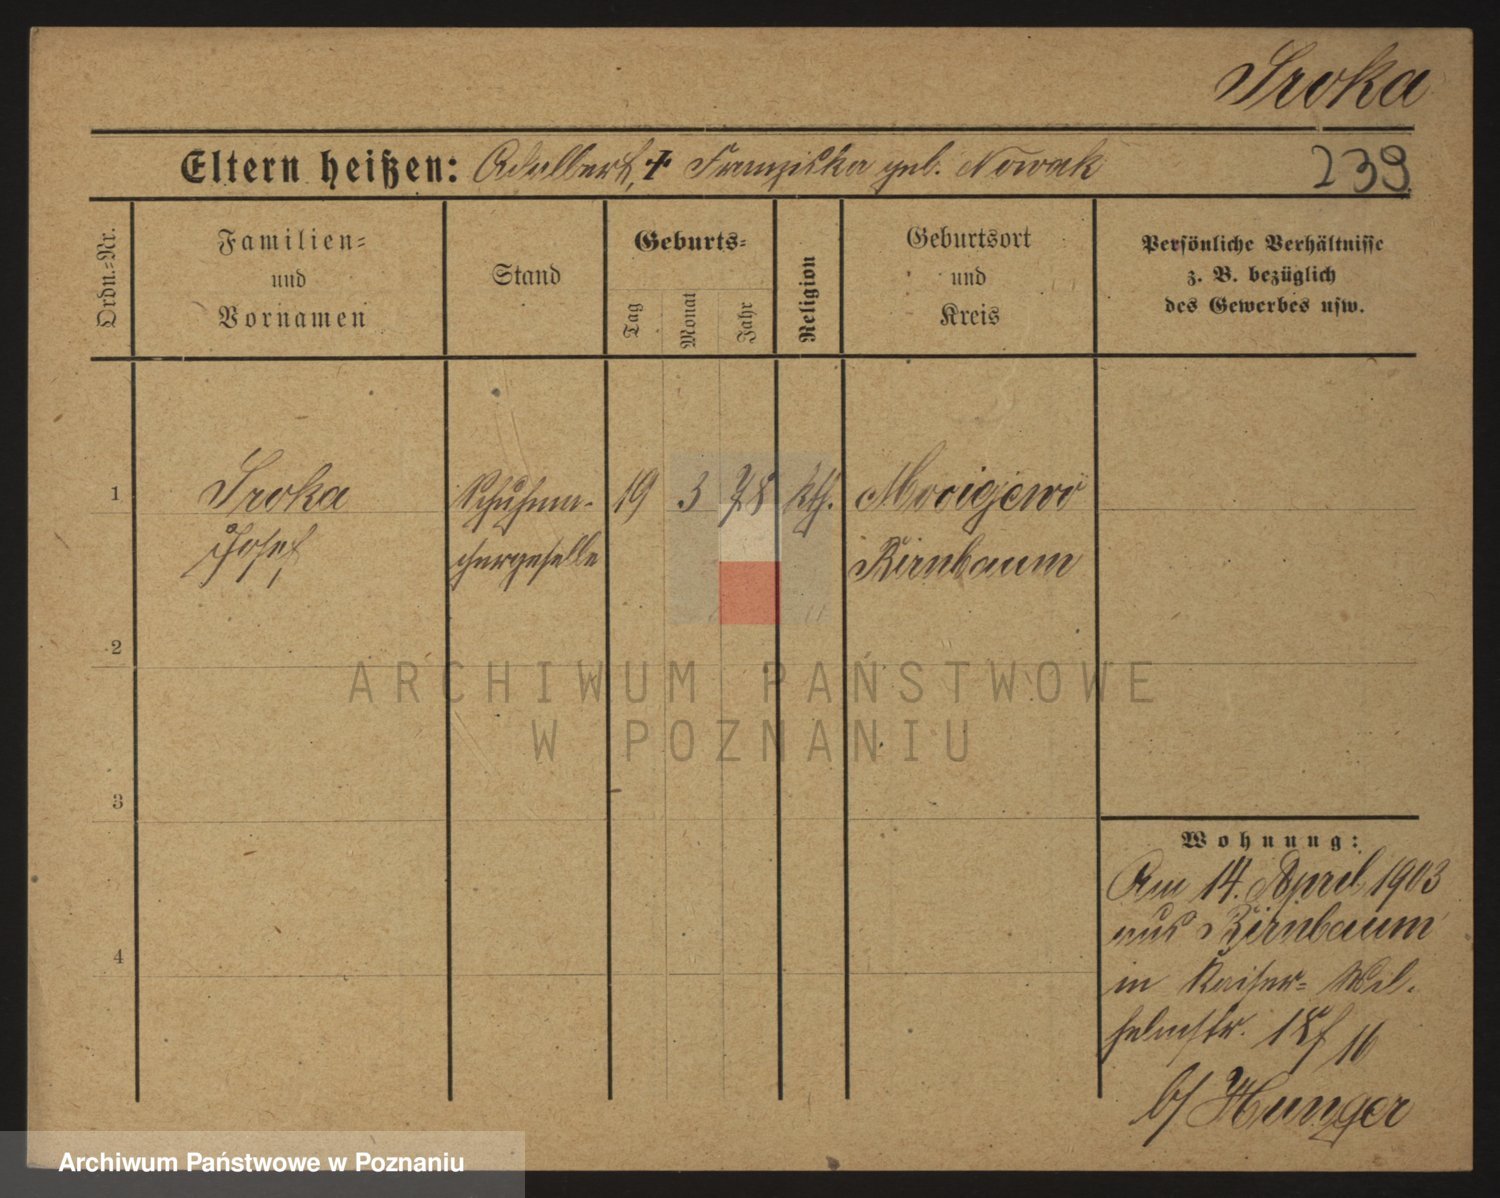 Sroka
Eltern heißen: Adalbert, + Franziska geb. Nowak
239
Ordn.-Nr.
Familien-
und
Vornamen
Stand
Geburts-
Tag
Monat
Jahr
Religion
Geburtsort
und
Kreis
Persönliche Verhältnisse
z. B. bezüglich
des Gewerbes usw.
1
Sroka
Josef
Schuhma-
chergeselle
19
3
78
kth.
Birnbaum
2
3
4
ARCHIWUM PAŃSTWOWE
W POZNANIU
Wohnung:
Am 14. April 1903
aus Birnbaum
in Kaiser- Wil-
helmstr. 16
b/ Hunger
Archiwum Państwowe w Poznaniu